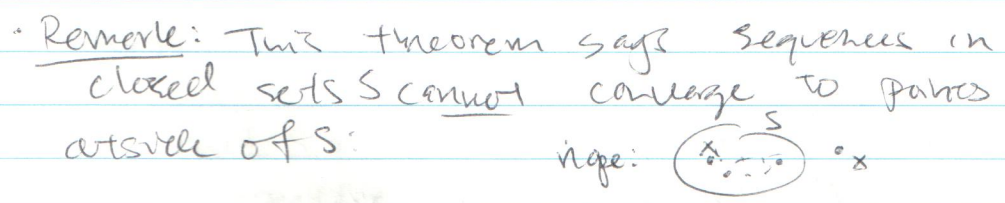 · Remark: This theorem says sequences in
closed sets S cannot converge to points
outside of S:
nope: S x x